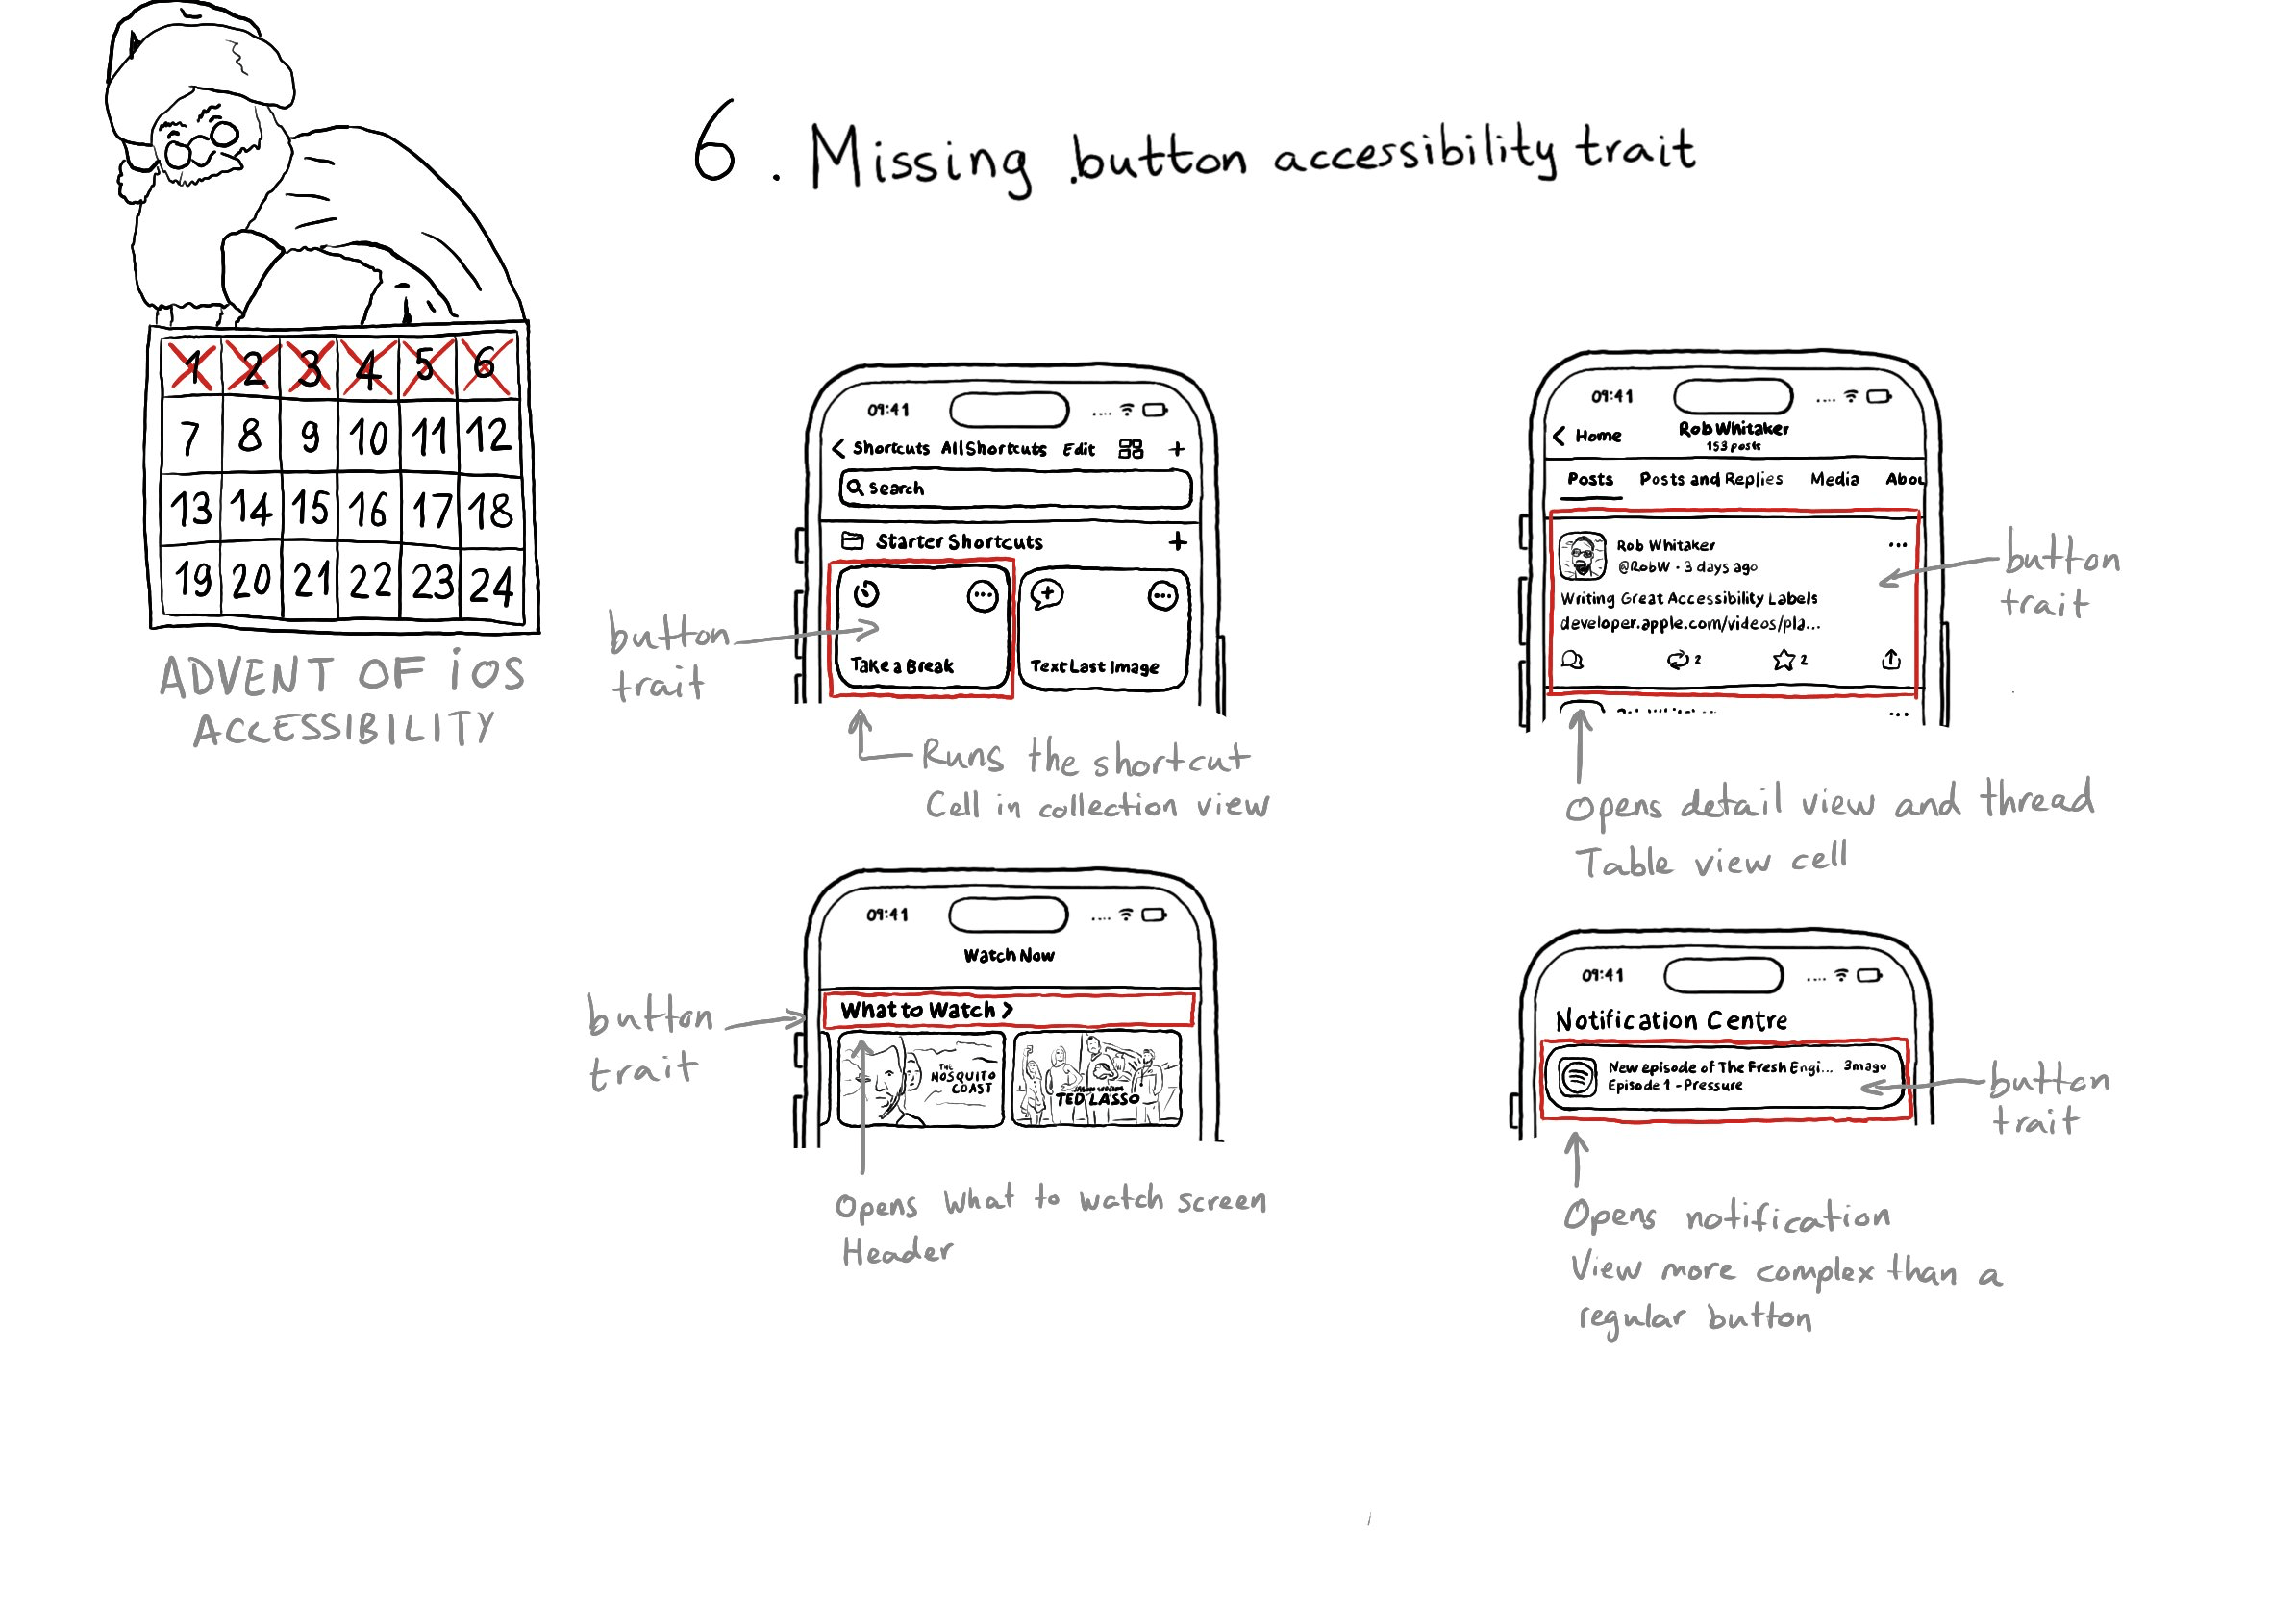 6. Missing .button accessibility trait
1 2 3 4 5 6
7 8 9 10 11 12
13 14 15 16 17 18
19 20 21 22 23 24
ADVENT OF iOS
ACCESSIBILITY
09:41
Shortcuts All Shortcuts Edit +
Search
Starter Shortcuts +
Take a Break
Text Last Image
button
trait
Runs the shortcut
Cell in collection view
09:41
Home
Rob Whitaker
153 posts
Posts Posts and Replies Media Abou
Rob Whitaker ...
@RobW · 3 days ago
Writing Great Accessibility Labels
developer.apple.com/videos/pla...
2 2
...
button
trait
Opens detail view and thread
Table view cell
09:41
Watch Now
What to Watch >
THE
MOSQUITO
COAST
TED LASSO
button
trait
Opens What to watch screen
Header
09:41
Notification Centre
New episode of The Fresh Engi... 3m ago
Episode 1 - Pressure
button
trait
Opens notification
View more complex than a
regular button